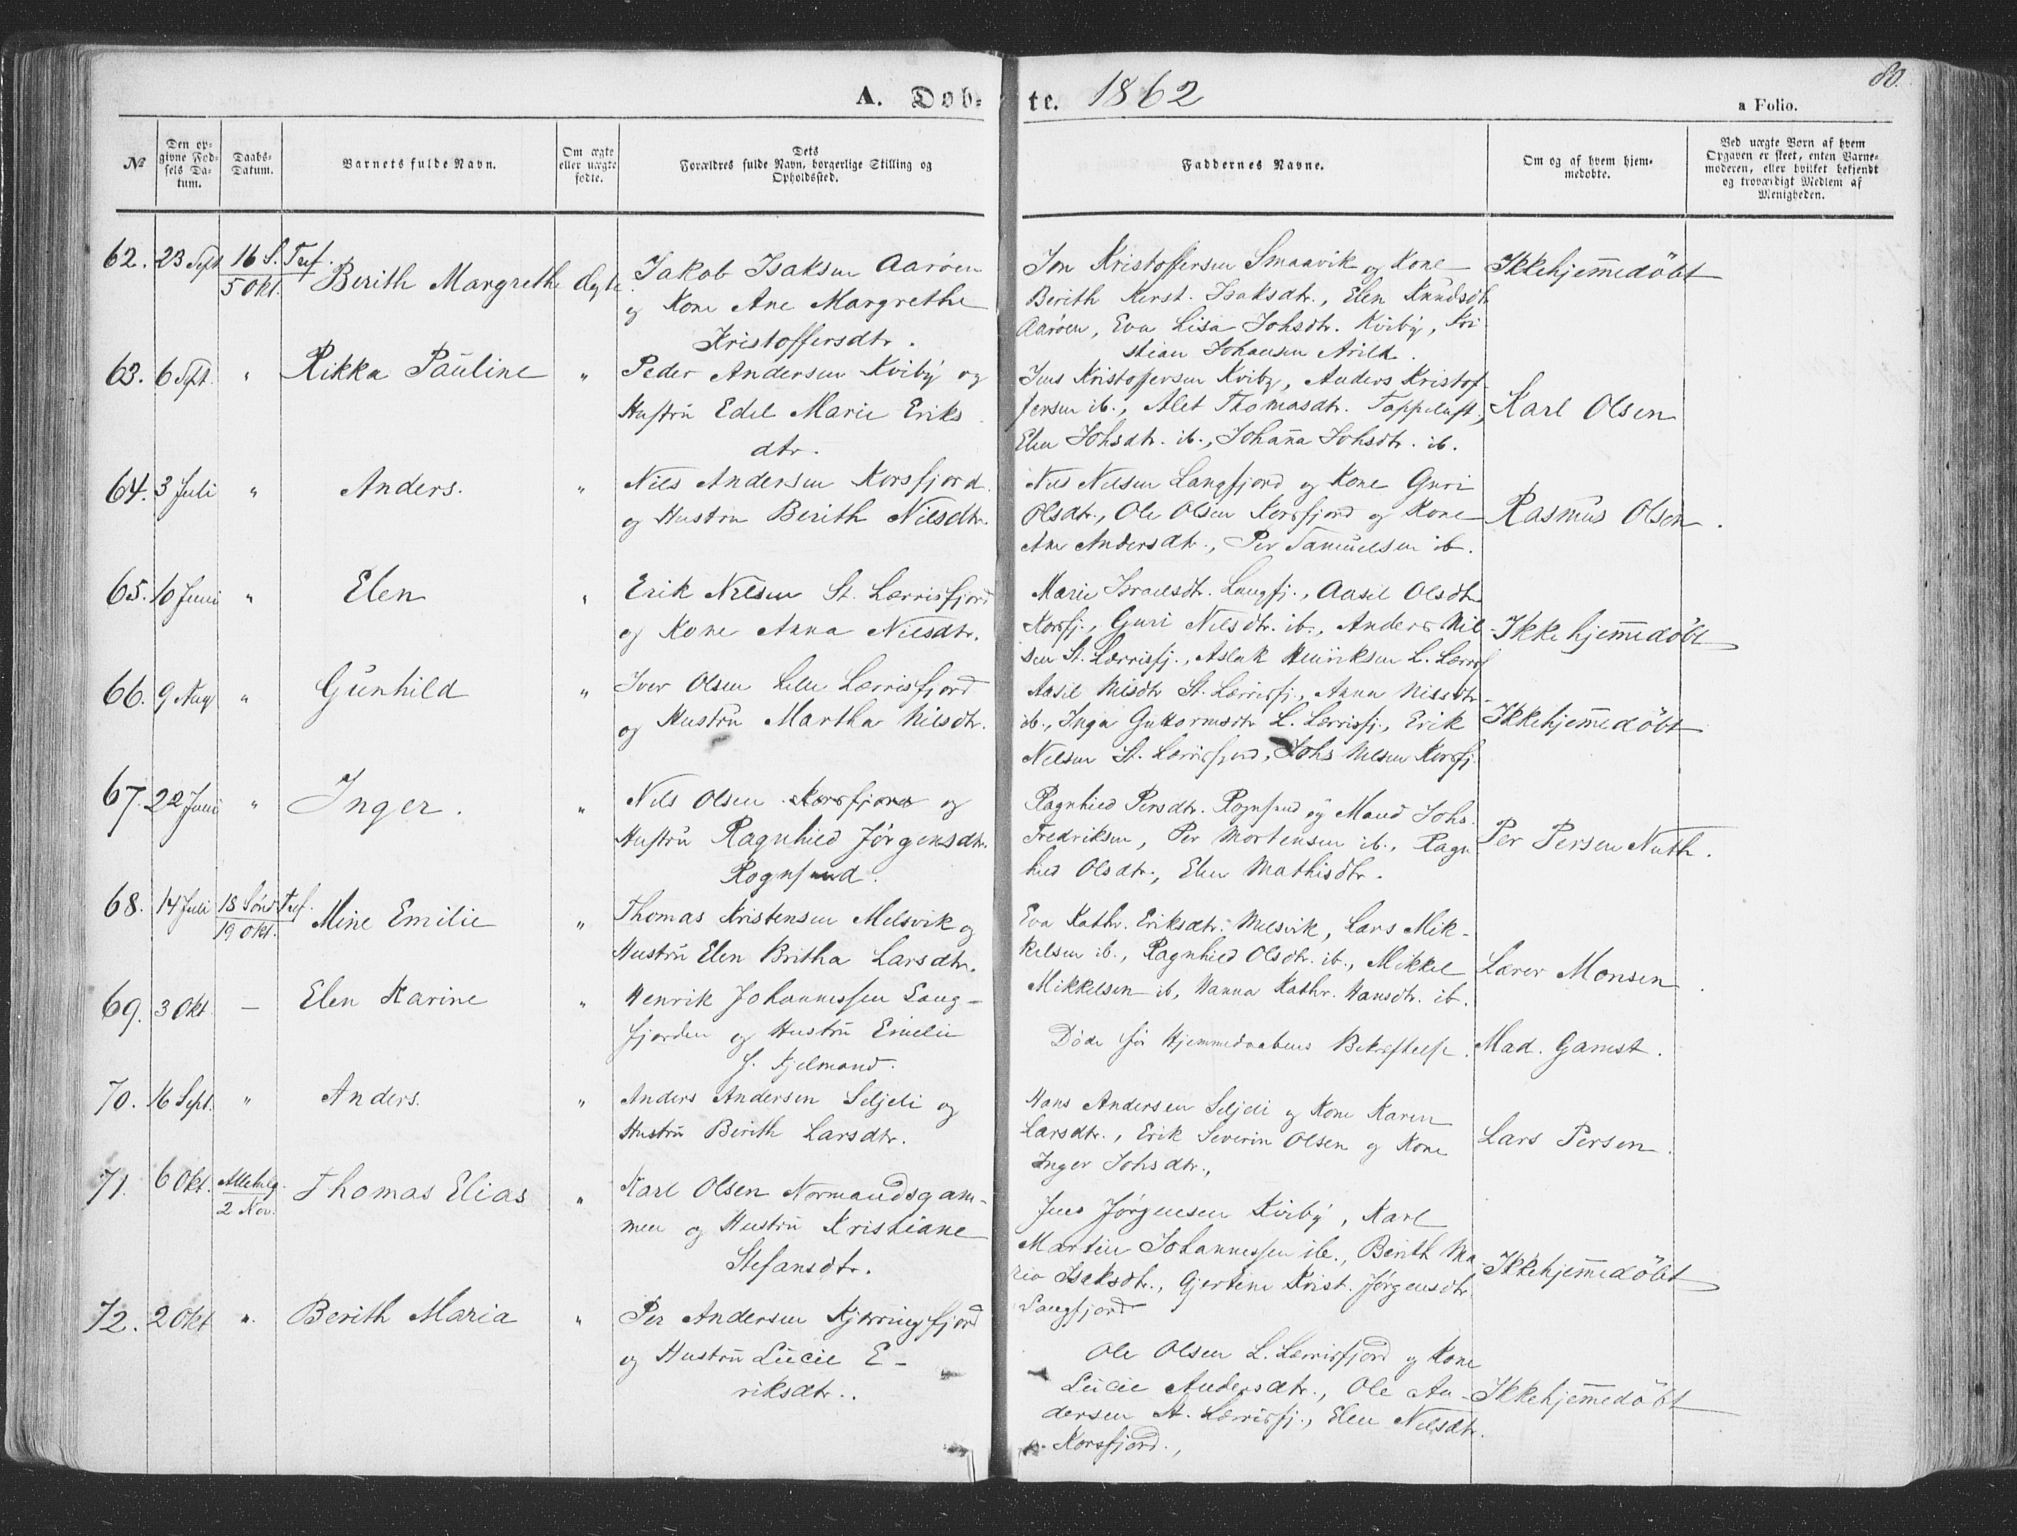 80.
A. Døb-te. 1862
a Folio.
№
Den op-
givne Fød-
sels Da-
tum.
Daabs-
Datum.
Barnets fulde Navn.
Om ægte
eller uægte
fødte.
Dets
Forældres fulde Navn, borgerlige Stilling og
Opholdssted.
Faddernes Navne.
Om og af hvem hjem-
medøbte.
Ved uægte Born af hvem
Opgaven er skeet, enten Barne-
moderen, eller hvilket bekjendt
og troværdigt Medlem af
Menigheden.
62. 23 Sept 16 S. Tref.
5 Okt.
Berith Margrethe Ægte
Jakob Isaksen Aarøen
og Kone Ane Margrethe
Kristoffersdtr.
Jon Kristoffersen Smaavik og Kone
Berith Kerst. Isaksdtr., Elen Knudsdtr
Aarøen, Eva Lisa Johsdtr. Kviby, Kri-
stian Johansen Arild.
Ikkehjemmedöbt
63. 6 Sept. " Rikka Pauline "
Peder Andersen Kviby og
Hustru Edel Marie Eriks
dtr.
Jens Kristoffersen Kviby, Anders Kristof-
fersen ib., Alet Thomasdtr. Tappeluft,
Elen Johsdtr. ib., Johanna Johsdtr. ib.
Karl Olsen
64. 3 Juli " Anders. "
Nils Andersen Korsfjord
og Hustru Berith Nilsdtr.
Nils Nilsen Langfjord og Kone Guri
Olsdtr., Ole Olsen Korsfjord og Kone
Ane Andersdtr., Per Samuelsen ib.
Rasmus Olsen.
65. 10 Juni " Elen "
Erik Nilsen St. Lærrisfjord
og Kone Anna Nilsdtr.
Marie Israelsdtr. Langfj., Aasil Olsdtr
Korsfj., Guri Nilsdtr. ib., Anders Nil-
sen St. Lærrisfj., Aslak Henriksen L. Lærrisf
Ikke hjemmedöbt
66. 9 Aug " Gunhild "
Iver Olsen Lille Lærrisfjord
og Hustru Martha Nilsdtr.
Aasil Nilsdtr St. Lærrisfj., Anna Nilsdtr.
ib., Inga Guttormsdtr L. Lærrisfj., Erik
Nilsen St. Lærrisfjord, Johs Nilsen Korsfj.
Ikkehjemmedöbt
67. 22 Juni " Inger. "
Nils Olsen Korsfjord og
Hustru Ragnhied Jørgensdtr.
Rognsund.
Ragnhied Persdtr. Rognsund og Mand Johs.
Fredriksen, Per Mortensen ib., Ragn-
hied Olsdtr., Elen Mathisdtr.
Per Persen Nuth.
68. 14 Juli 18 Sønd. Tref.
19 Okt.
Mine Emilie "
Thomas Kristensen Melsvik og
Hustru Elen Britha Larsdtr.
Eva Kathr. Eriksdtr. Melsvik, Lars Mik-
kelsen ib., Ragnhied Olsdtr. ib., Mikkel
Mikkelsen ib, Hanna Kathr. Hansdtr. ib.
Lærer Monsen.
69. 3 Okt. — Elen Karine "
Henrik Johannessen Lang-
fjorden og Hustru Emelie
J. Kjelmand.
Døde før Hjemmedaabens Bekræftelse.
Mad. Gamst.
70. 16 Sept. " Anders. "
Anders Andersen Seljeli og
Hustru Berith Larsdtr.
Hans Andersen Seljeli og Kone Karen
Larsdtr., Erik Severin Olsen og Kone
Inger Johsdtr.,
Lars Persen.
71. 6 Okt. Allehelg.
2 Nov.
Thomas Elias "
Karl Olsen Normandsgam-
men og Hustru Kristiane
Stefansdtr.
Jens Jørgensen Kviby, Karl
Martin Johannessen ib., Berith Ma-
rie Isaksdtr., Gjertine Krist. Jørgensdtr.
Langfjord
Ikkehjemmedöbt
72. 2 Okt ". Berith Maria "
Per Andersen Kjærringfjord
og Hustru Lucie E-
riksdtr..
Ole Olsen L. Lærrisfjord og Kone
Lucie Andersdtr., Ole An-
dersen St. Lærrisfj., Elen Nilsdtr.
Korsfjord.,
Ikkehjemmedöbt